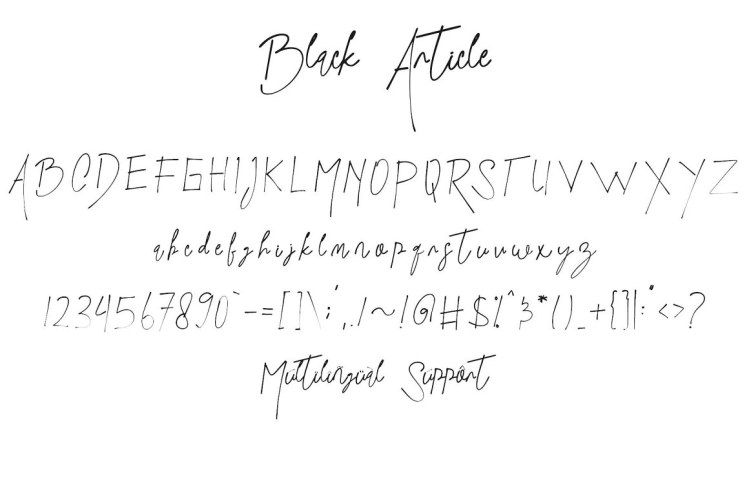 Black Article
ABCDEFGHIJKLMNOPQRSTUVWXYZ
abcdefghijklmnopqrstuvwxyz
1234567890`-=[]\;',./~!@#$%^&*()_+{}|:"<>?
Mültilingüäl Süppört